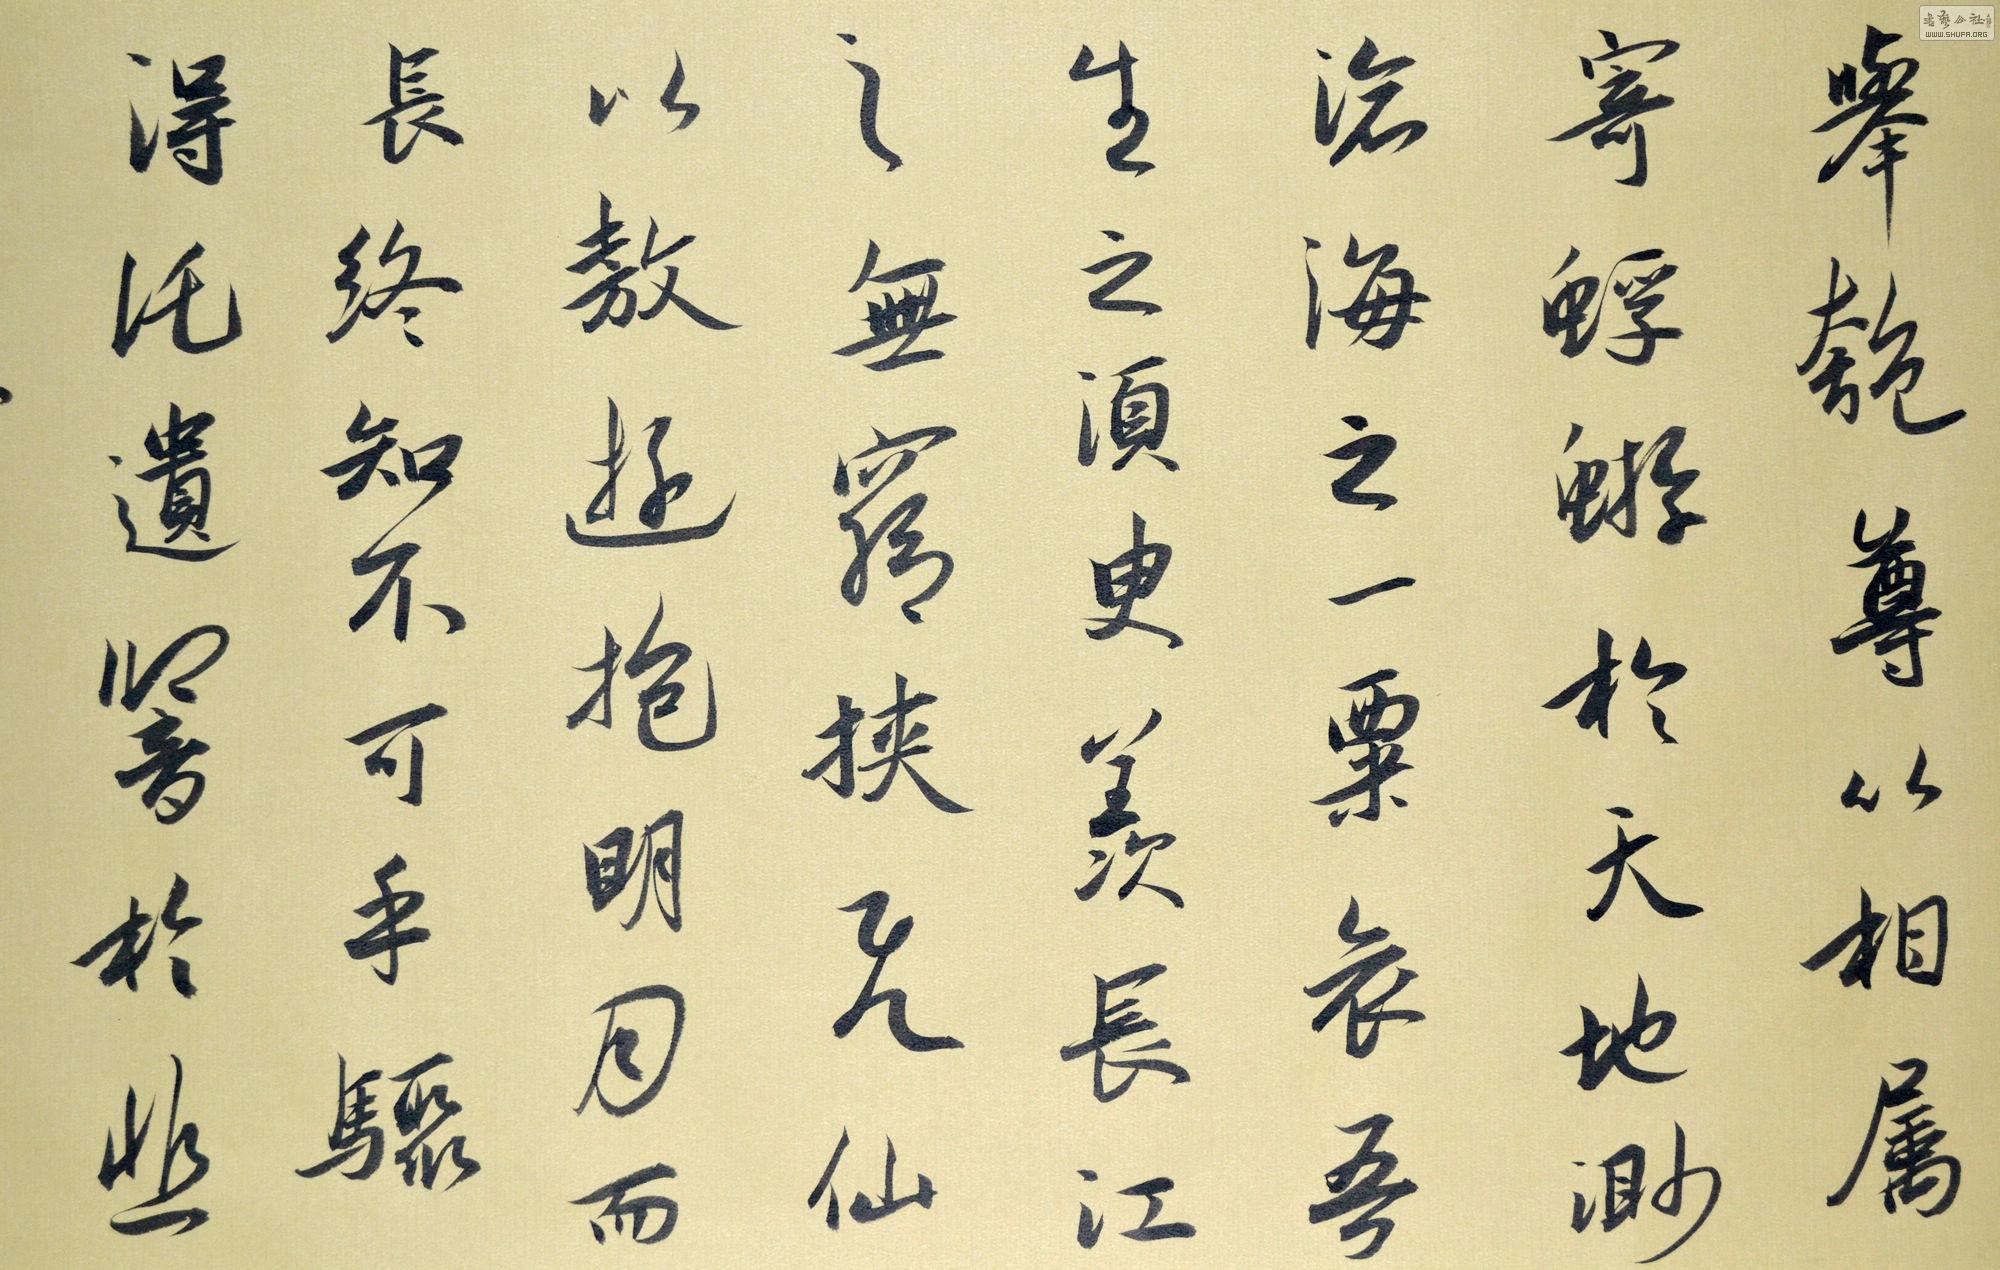 舉匏尊以相属
寄蜉蝣於天地渺
滄海之一粟哀吾
生之須臾羨長江
之無窮挾飛仙
以敖遊抱明月而
長終知不可乎驟
得託遺響於悲
書藝公社
WWW.SHUFA.ORG